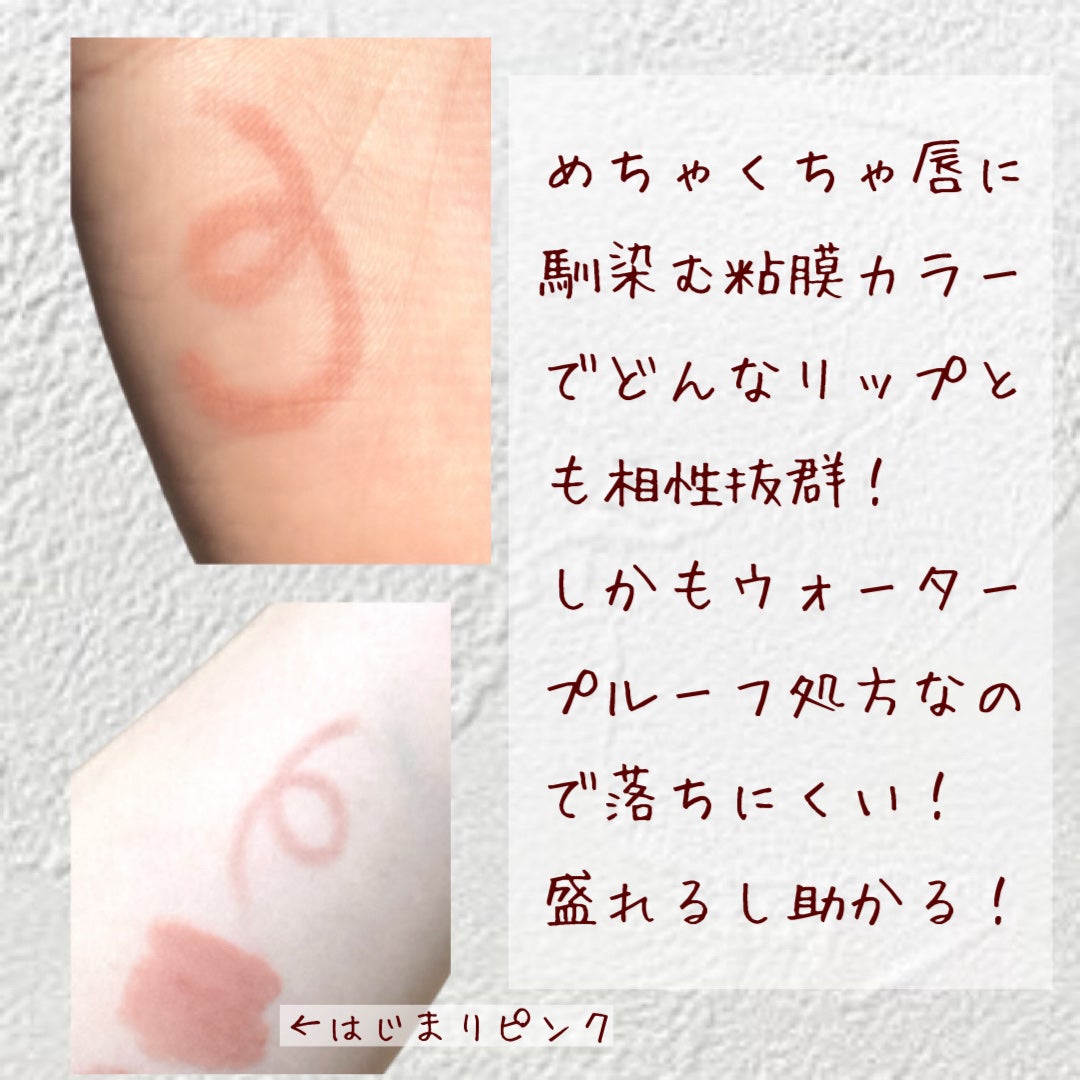 めちゃくちゃ唇に
馴染む粘膜カラー
でどんなリップと
も相性抜群！
しかもウォーター
プルーフ処方なの
で落ちにくい！
盛れるし助かる！
←はじまりピンク